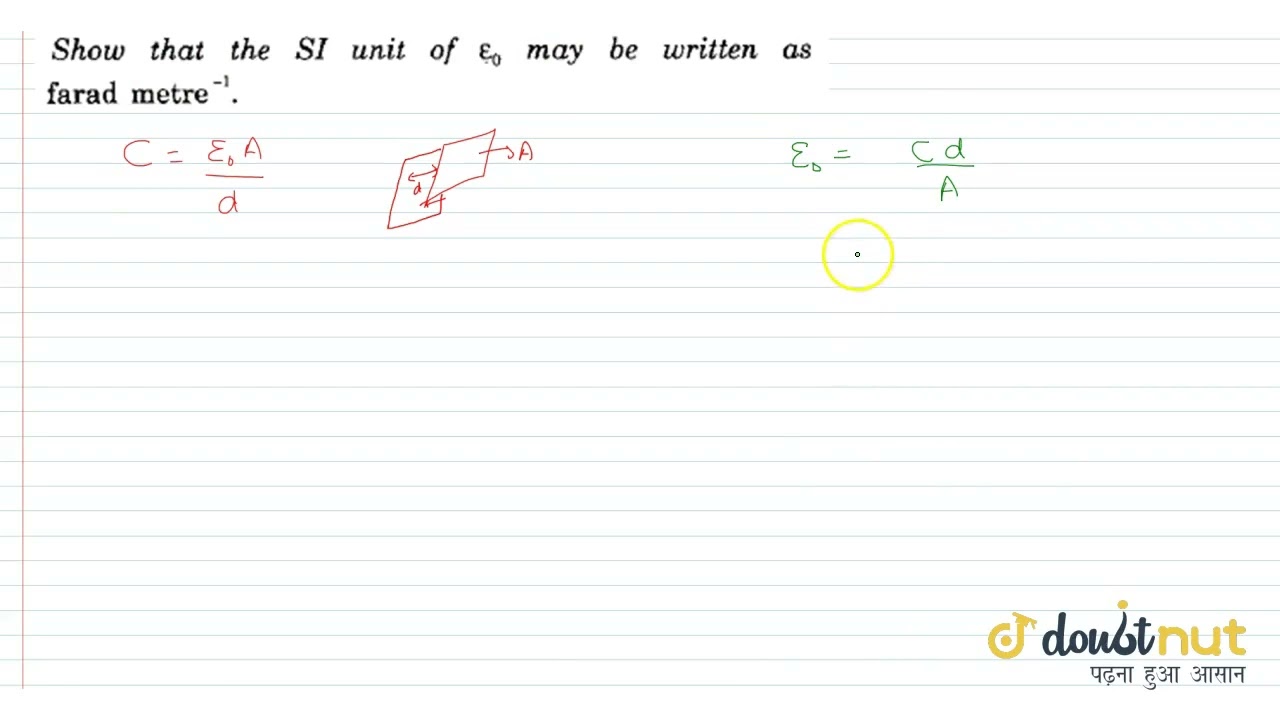 Show that the SI unit of ε₀ may be written as
farad metre⁻¹.
C = ε₀ A / d
d
A
ε₀ = C d / A
doubtnut
पढ़ना हुआ आसान